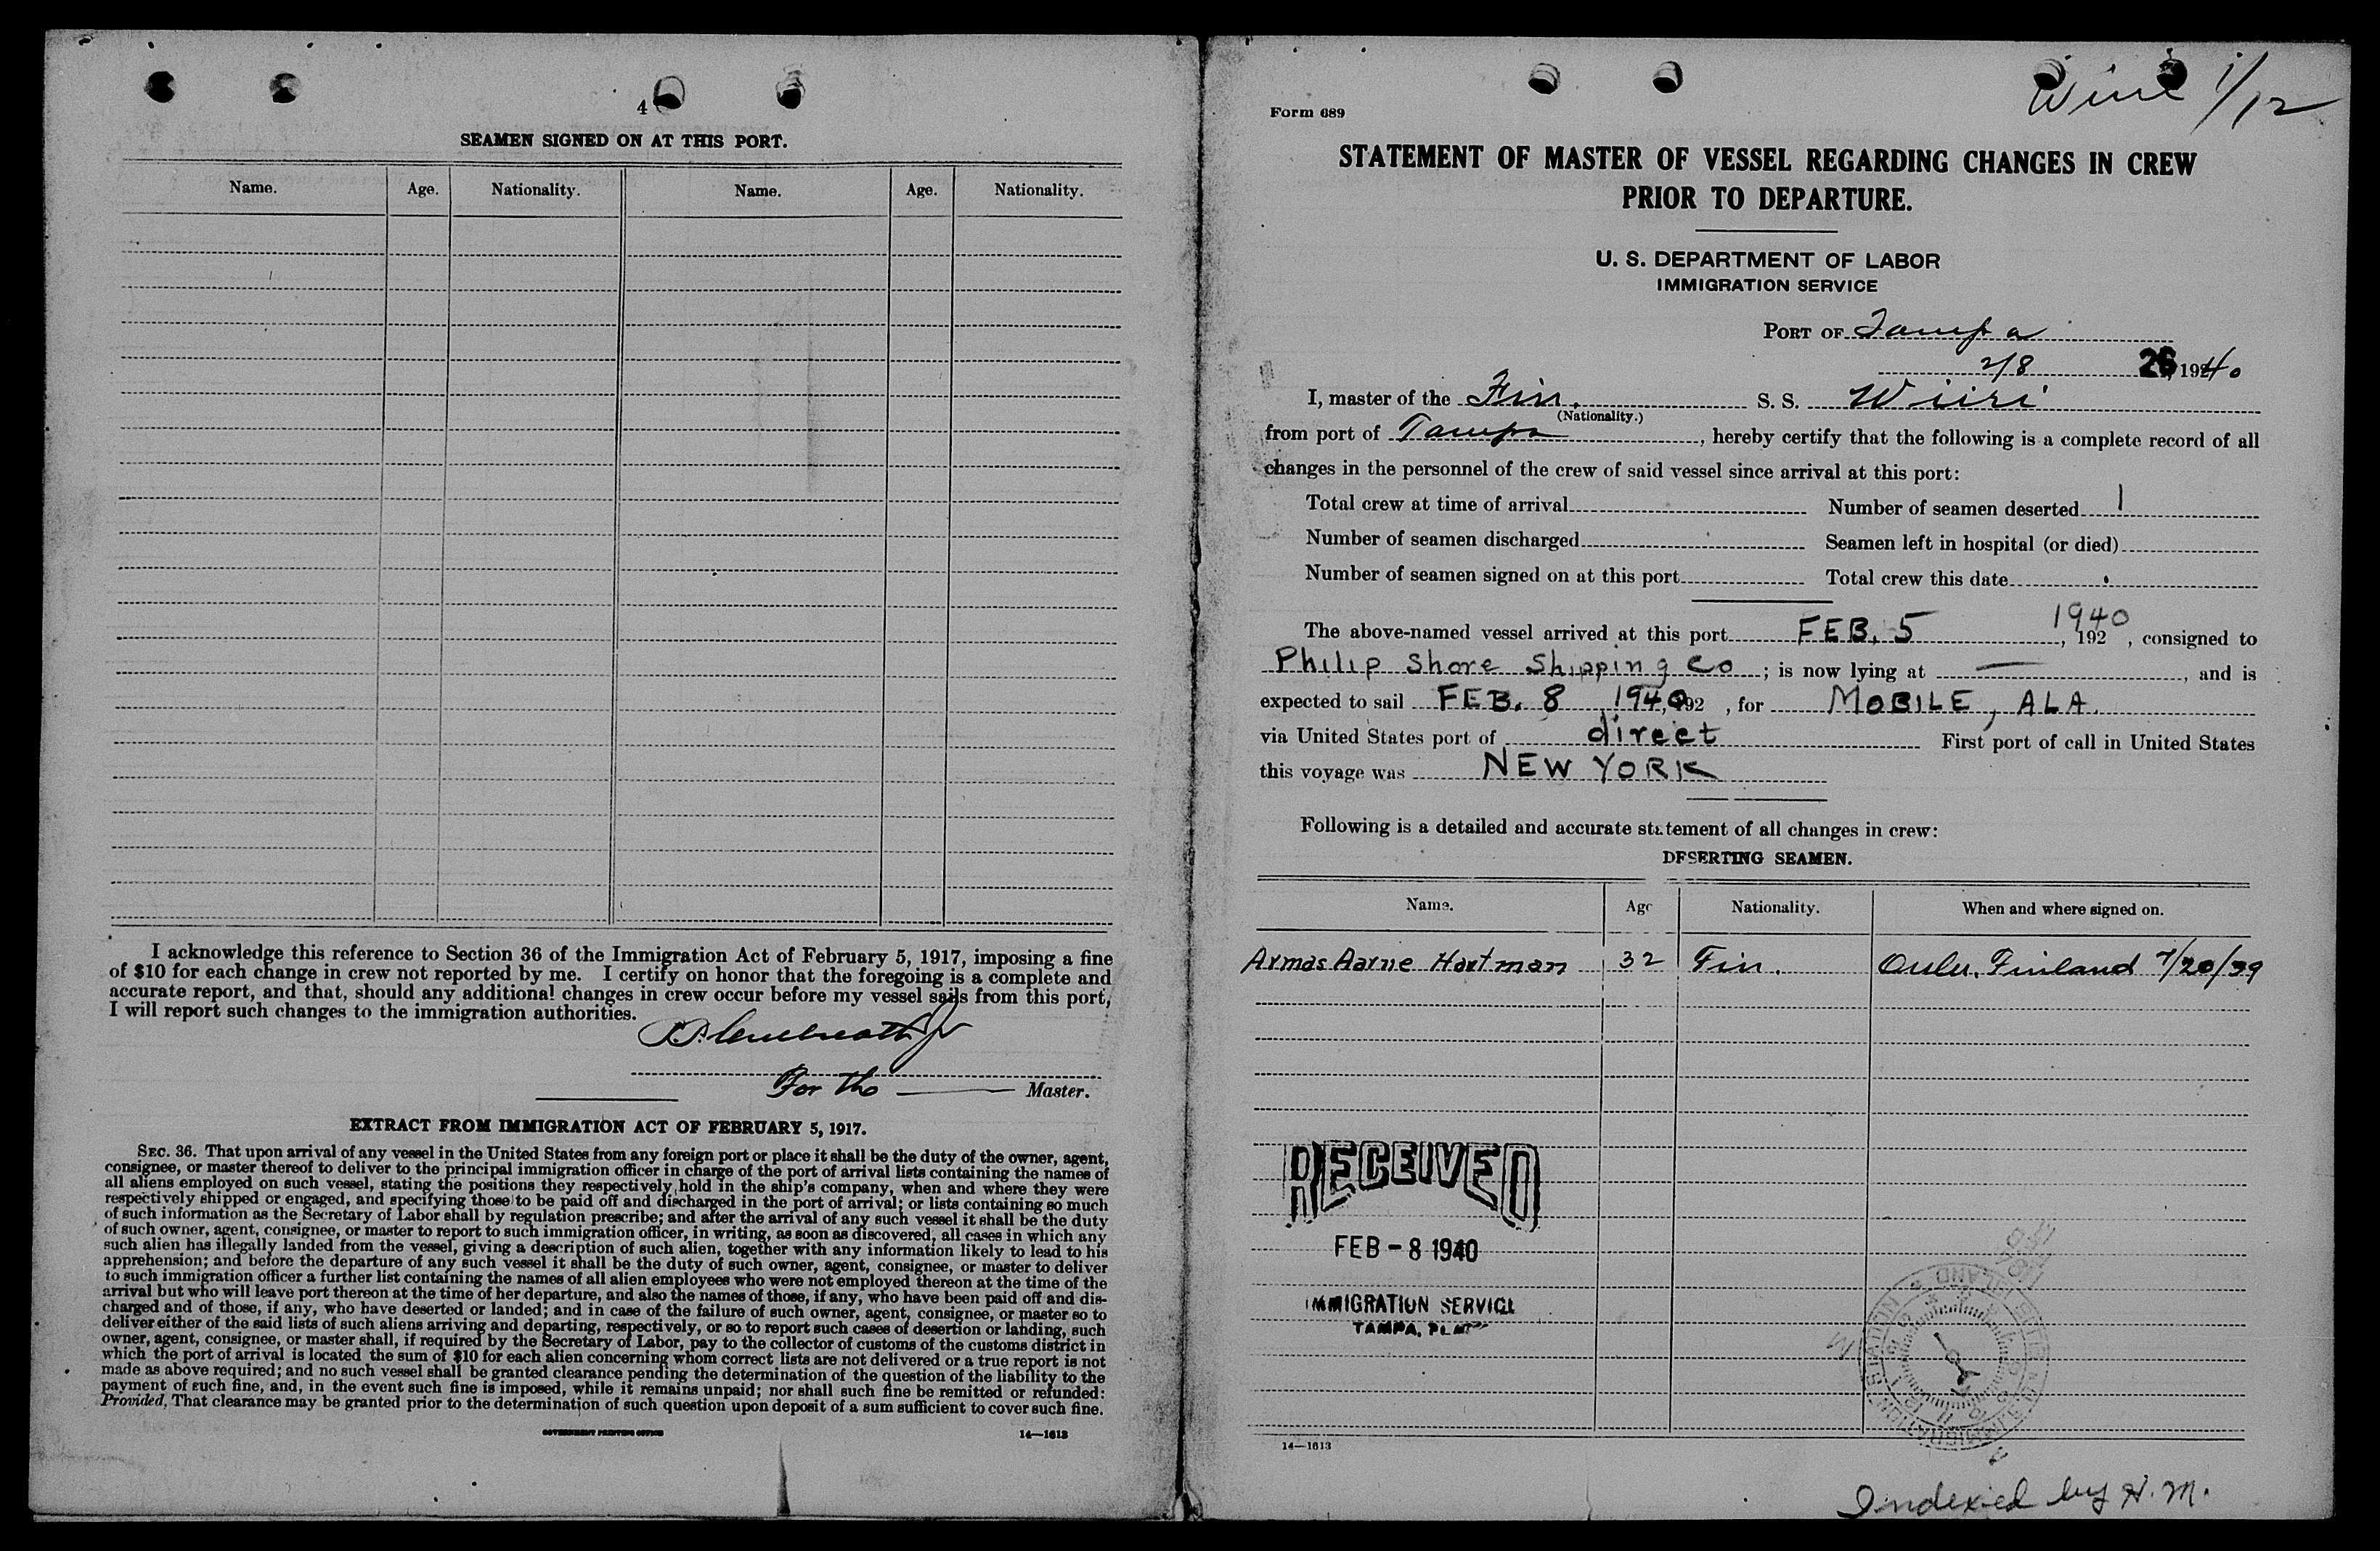 4
SEAMEN SIGNED ON AT THIS PORT.
Name. Age. Nationality. Name. Age. Nationality.
I acknowledge this reference to Section 36 of the Immigration Act of February 5, 1917, imposing a fine
of $10 for each change in crew not reported by me. I certify on honor that the foregoing is a complete and
accurate report, and that, should any additional changes in crew occur before my vessel sails from this port,
I will report such changes to the immigration authorities.
For the Master.
EXTRACT FROM IMMIGRATION ACT OF FEBRUARY 5, 1917.
SEC. 36. That upon arrival of any vessel in the United States from any foreign port or place it shall be the duty of the owner, agent,
consignee, or master thereof to deliver to the principal immigration officer in charge of the port of arrival lists containing the names of
all aliens employed on such vessel, stating the positions they respectively hold in the ship's company, when and where they were
respectively shipped or engaged, and specifying those to be paid off and discharged in the port of arrival; or lists containing so much
of such information as the Secretary of Labor shall by regulation prescribe; and after the arrival of any such vessel it shall be the duty
of such owner, agent, consignee, or master to report to such immigration officer, in writing, as soon as discovered, all cases in which any
such alien has illegally landed from the vessel, giving a description of such alien, together with any information likely to lead to his
apprehension; and before the departure of any such vessel it shall be the duty of such owner, agent, consignee, or master to deliver
to such immigration officer a further list containing the names of all alien employees who were not employed thereon at the time of the
arrival but who will leave port thereon at the time of her departure, and also the names of those, if any, who have been paid off and dis-
charged and of those, if any, who have deserted or landed; and in case of the failure of such owner, agent, consignee, or master so to
deliver either of the said lists of such aliens arriving and departing, respectively, or so to report such cases of desertion or landing, such
owner, agent, consignee, or master shall, if required by the Secretary of Labor, pay to the collector of customs of the customs district in
which the port of arrival is located the sum of $10 for each alien concerning whom correct lists are not delivered or a true report is not
made as above required; and no such vessel shall be granted clearance pending the determination of the question of the liability to the
payment of such fine, and, in the event such fine is imposed, while it remains unpaid; nor shall such fine be remitted or refunded:
Provided, That clearance may be granted prior to the determination of such question upon deposit of a sum sufficient to cover such fine.
GOVERNMENT PRINTING OFFICE 14—1613
1/12
Form 689
STATEMENT OF MASTER OF VESSEL REGARDING CHANGES IN CREW
PRIOR TO DEPARTURE.
U. S. DEPARTMENT OF LABOR
IMMIGRATION SERVICE
PORT OF Tampa
2/8 26, 1940
I, master of the Fin. S. S. Wiiri
(Nationality.)
from port of Tampa, hereby certify that the following is a complete record of all
changes in the personnel of the crew of said vessel since arrival at this port:
Total crew at time of arrival Number of seamen deserted 1
Number of seamen discharged Seamen left in hospital (or died)
Number of seamen signed on at this port Total crew this date
The above-named vessel arrived at this port FEB. 5 1940, 192 , consigned to
Philip Shore Shipping Co; is now lying at —, and is
expected to sail FEB. 8 1940, 192 , for MOBILE, ALA.
via United States port of direct First port of call in United States
this voyage was NEW YORK
Following is a detailed and accurate statement of all changes in crew:
DESERTING SEAMEN.
Name. Age Nationality. When and where signed on.
Armas Aarne Hartman 32 Fin. Oulu, Finland 7/20/39
RECEIVED
FEB - 8 1940
IMMIGRATION SERVICE
TAMPA, FLA
14—1613
Indexed by H. M.